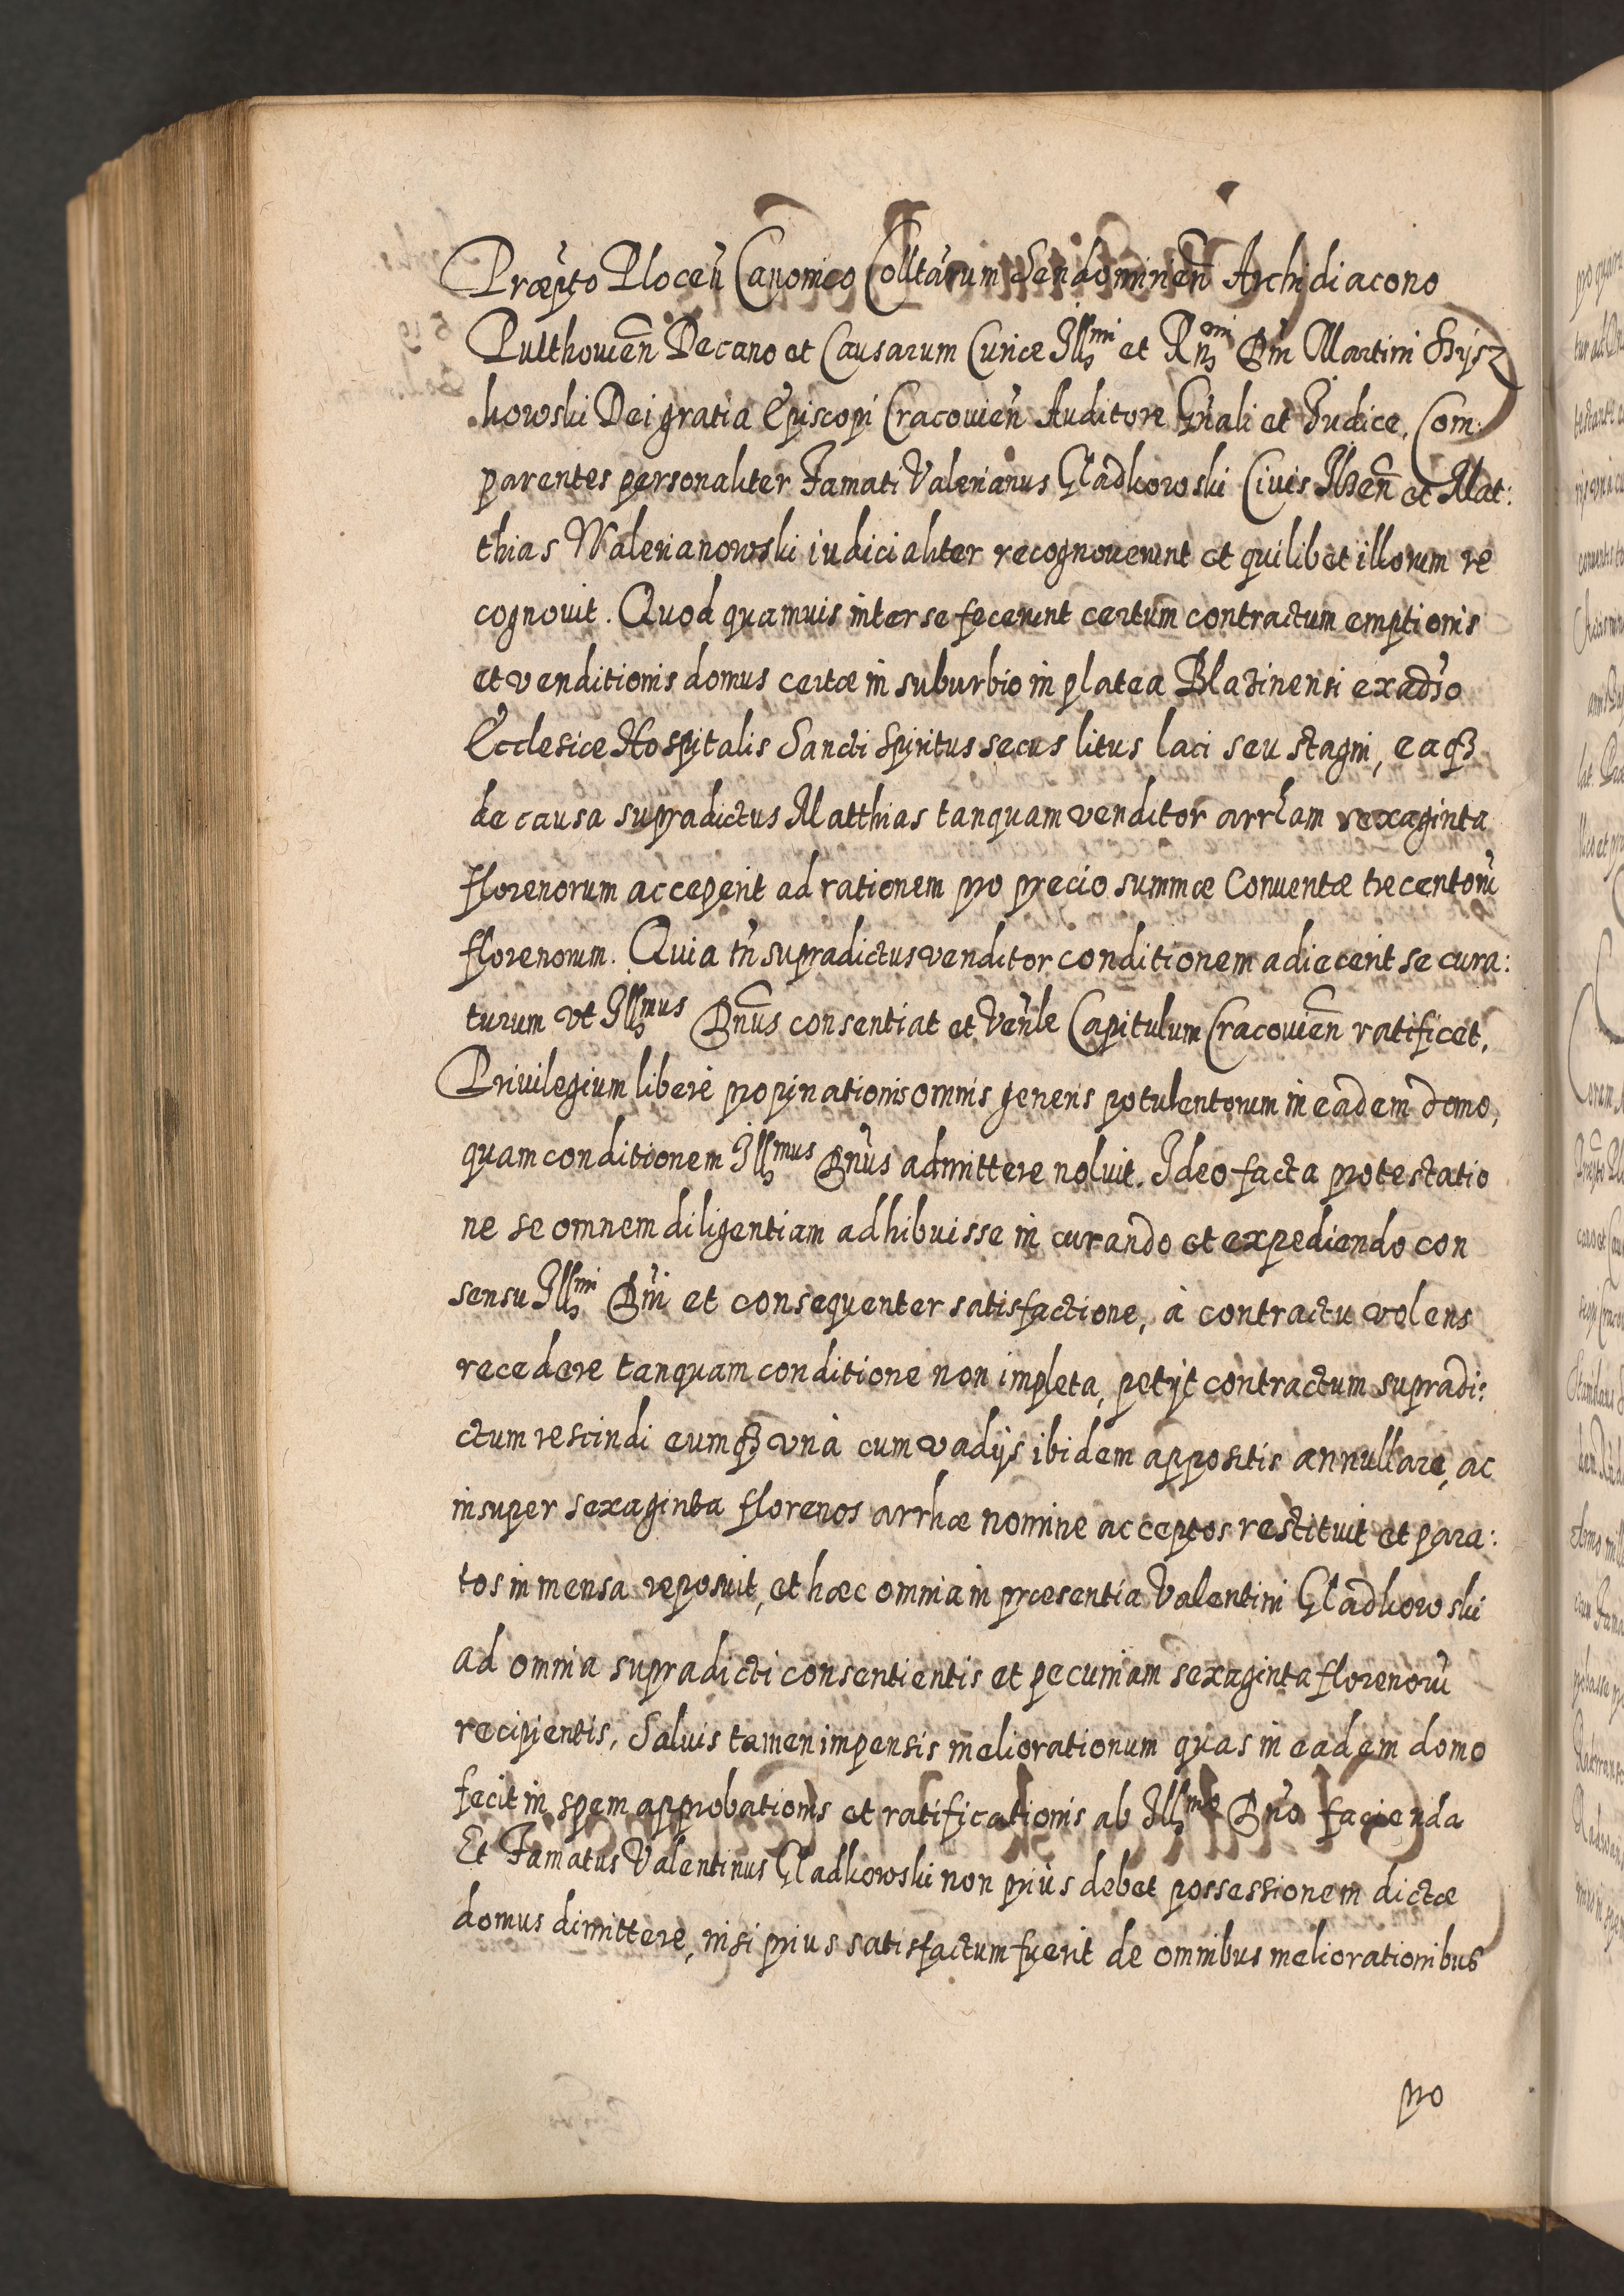 Præpto Plocen̄ Canonico Colltarum Sendomirien̄ Archidiacono
Pulthovien̄ Decano et Causarum Curiæ Illmi et Rn̄mi Dn̄i Martini Szysz
kowski Dei gratia Episcopi Cracovien̄ Auditore Gn̄ali et Iudice. Com:
parentes personaliter Famati Valerianus Gładkowski Civis et Mat:
thias Walerianowski iudicialiter recognoverunt et quilibet illorum re
cognovit. Quod quamvis inter se fecerunt certum contractum emptionis
et venditionis domus certæ in suburbio in platea exadso
Ecclesiæ Hospitalis Sancti Spiritus secus litus laci seu stagni, eaqꝫ
de causa supradictus Matthias tanquam venditor arrham sexaginta
florenorum acceperit ad rationem pro precio summæ Conventæ trecentorū
florenorum. Quia tn̄ supradictus venditor conditionem adiecerit se cura:
turum vt Illmus Dn̄us consentiat et Ven̄le Capitulum Cracovien̄ ratificet,
Privilegium liberè propinationis omnis generis potulentorum in eadem domo,
quam conditionem Illmus Dn̄us admittere noluit. Ideo facta protestatio
ne se omnem diligentiam adhibuisse in curando et expediendo con
sensu Illmi Dn̄i et consequenter satisfactione, à contractu volens
recedere tanquam conditione non impleta, petijt contractum supradi:
ctum rescindi eumqꝫ vnà cum vadijs ibidem appositis annullare, ac
insuper sexaginta florenos arrhæ nomine acceptos restituit et para:
tos in mensa reposuit, et hæc omnia in præsentia Valentini Gładkowski
ad omnia supradicti consentientis et pecuniam sexaginta florenorū
recipientis, Salvis tamen impensis meliorationum quas in eadem domo
fecit in spem approbationis et ratificationis ab Illmo Dn̄o facienda
Et Famatus Valentinus Gładkowski non priùs debet possessionem dictæ
domus dimittere, nisi prius satisfactum fuerit de omnibus meliorationibus
pro